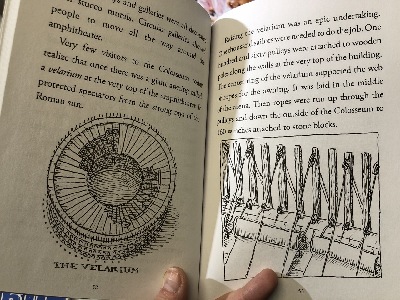 and galleries were all decorated
stucco murals. Circular
people to move all the way around the
amphitheater.
Very few visitors to the Colosseum
realize that once there was a giant awning called
a velarium at the very top of the amphitheater. It
protected spectators from the strong rays of the
Roman sun.
THE VELARIUM
Raising the velarium was an epic undertaking.
One thousand sailors were needed to do the job. One
hundred and sixty pulleys were attached to wooden
poles along the walls at the very top of the building.
The center ring of the velarium supported the web
of ropes for the awning. It was laid in the middle
of the arena. Then ropes were run up through the
pulleys and down the outside of the Colosseum to
160 winches attached to stone blocks.